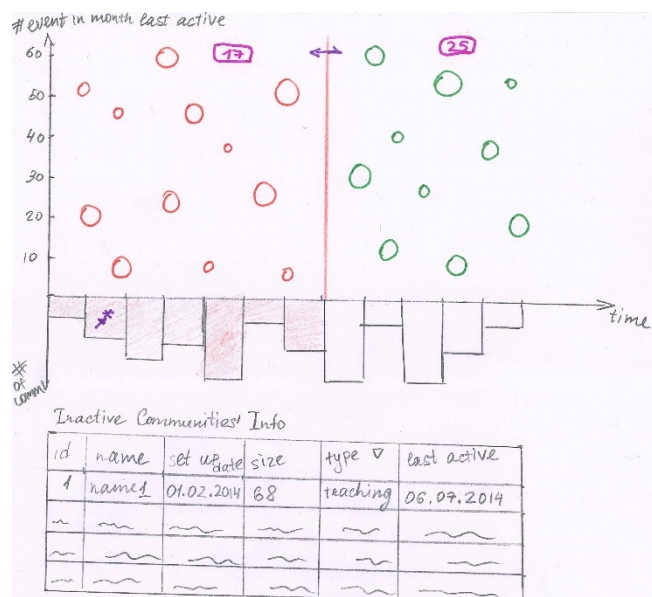 # event in month last active
60
17
25
50
40
30
20
10
time
#
of
comm.
Inactive Communities' Info
id name set up date size type ▽ last active
1 name1 01.02.2014 68 teaching 06.07.2014